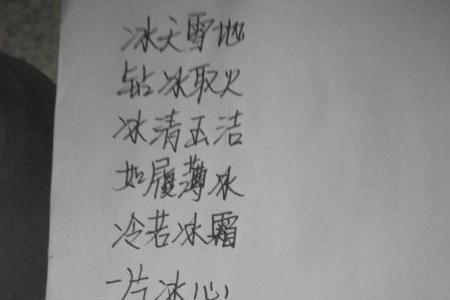 冰天雪地
钻冰取火
冰清玉洁
如履薄冰
冷若冰霜
一片冰心